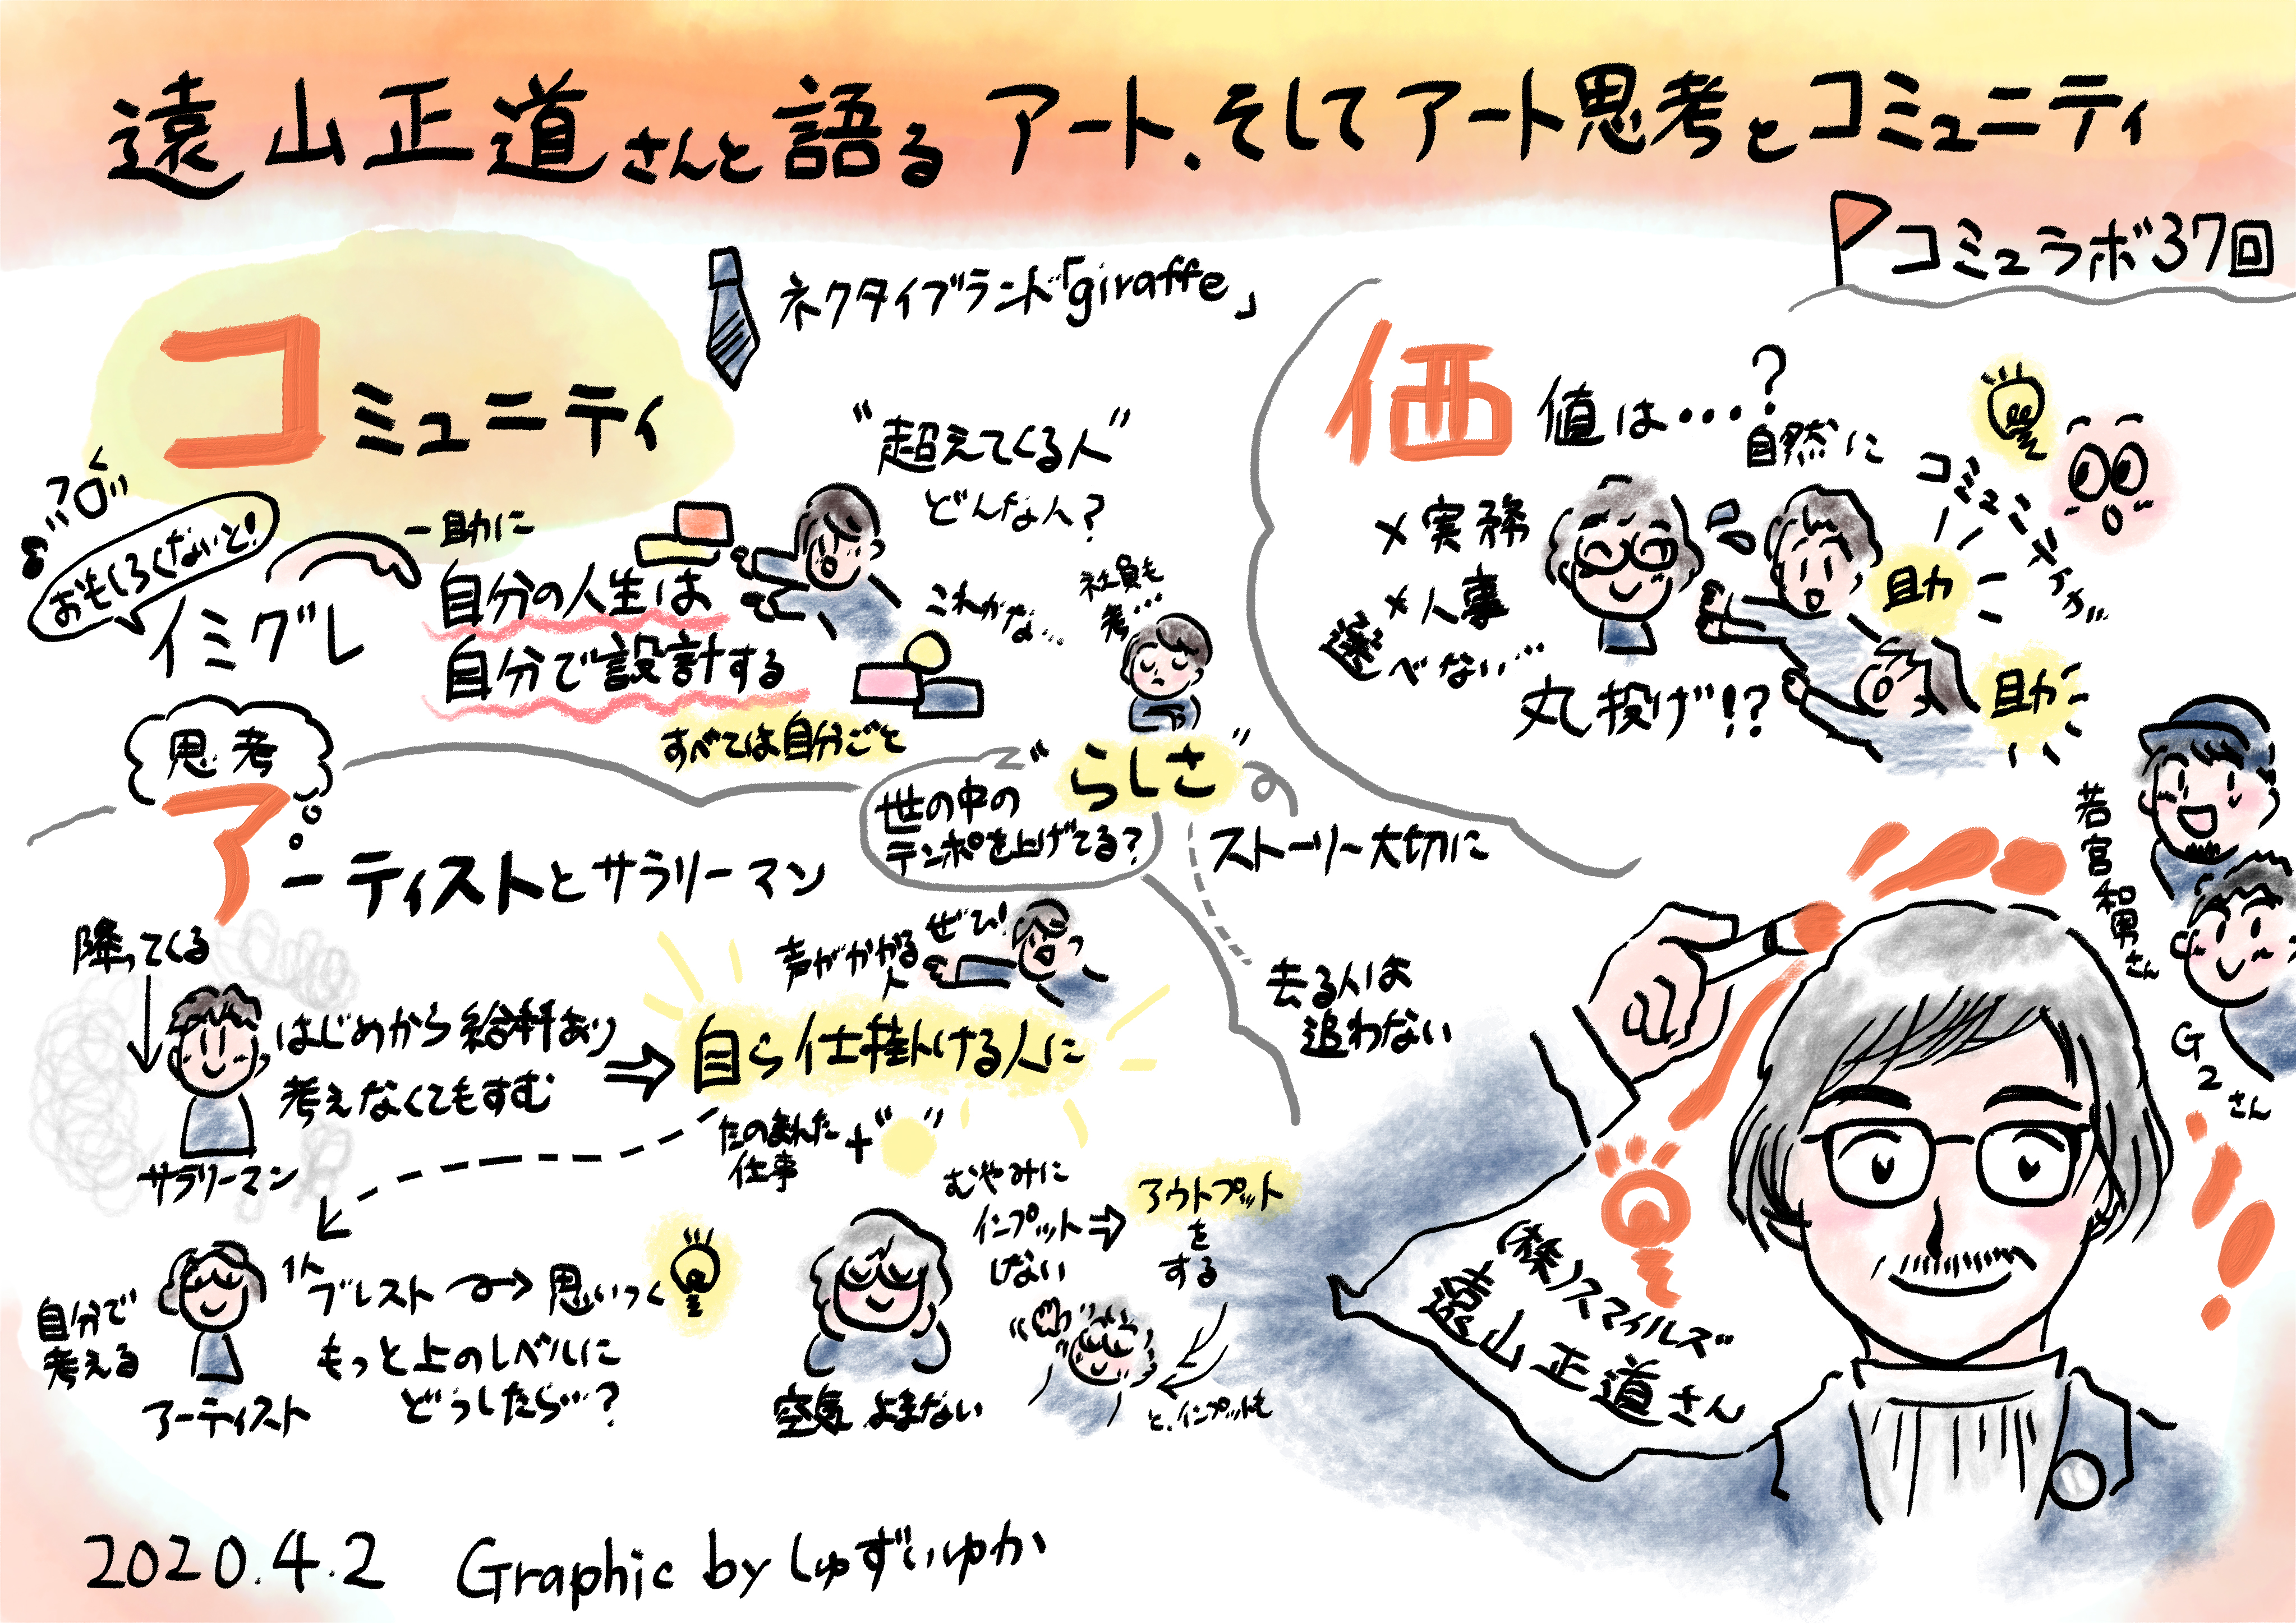 遠山正道さんと語るアート、そしてアート思考とコミュニティ
コミュラボ37回
ネクタイブランド「giraffe」
コミュニティ
おもしろくないと!
イミグレ
一助に
自分の人生は
自分で設計する
すべては自分ごと
"超えてくる人"
どんな人?
これかな…
社員も
考…
"らしさ"
世の中の
テンポを上げてる?
ストーリー大切に
去る人は
追わない
価値は…?
×実務
×人事
選べない…
丸投げ!?
自然に
コミュニティが…
助
助
思考
アーティストとサラリーマン
降ってくる
はじめから給料あり
考えなくてもすむ
サラリーマン
⇒
自ら仕掛ける人に
声がかかる
人
ぜひ!
たのまれた
仕事
+" "
自分で
考える
アーティスト
1人
ブレスト→思いつく
もっと上のレベルに
どうしたら…?
空気よまない
むやみに
インプット
しない
⇒
アウトプット
を
する
と、インプットも
若宮和男さん
G2さん
(株)スマイルズ
遠山正道さん
2020.4.2 Graphic by しゅずいゆか